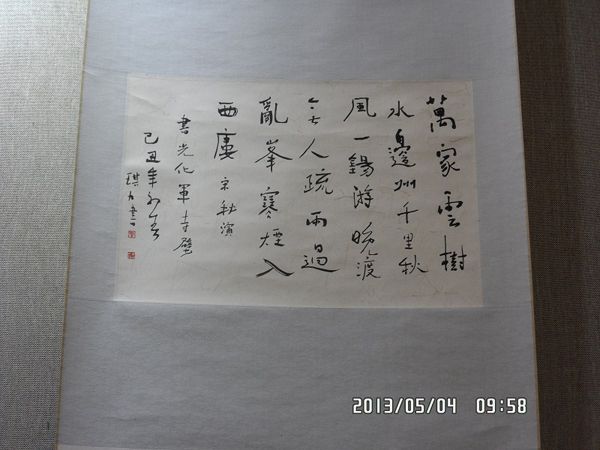 萬家雲樹
水邊州千里秋
風一錫游晚渡
無人疏雨過
亂峯寒煙入
西廔 宋秘演
書光化軍寺壁
己丑年初春
書
2013/05/04 09:58